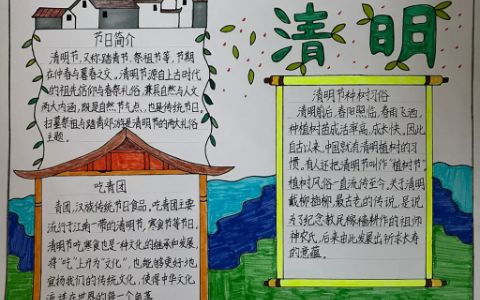 清明
节日简介
清明节,又称踏青节、祭祖节等,节期
在仲春与暮春之交。清明节源自上古时代
的祖先信仰与春祭礼俗,兼具自然与人文
两大内涵,既是自然节气点,也是传统节日。
扫墓祭祖与踏青郊游是清明节的两大礼俗
主题。
清明节种树习俗
清明前后,春阳照临,春雨飞洒,
种植树苗成活率高,成长快。因此
自古以来,中国就有清明植树的习
惯。有人还把清明节叫作"植树节"。
植树风俗一直流传至今。关于清明
戴柳插柳,最古老的传说,是说
为了纪念教民稼穑耕作的祖师
神农氏,后来由此发展出祈求长寿
的意蕴。
吃青团
青团,汉族传统节日食品,吃青团主要
流行于江南一带的清明节、寒食节等节日。
清明节吃寒食也是一种文化的继承和发展
将"吃"上升为"文化",也能够更好地
宣扬我们的传统文化,使得中华文化